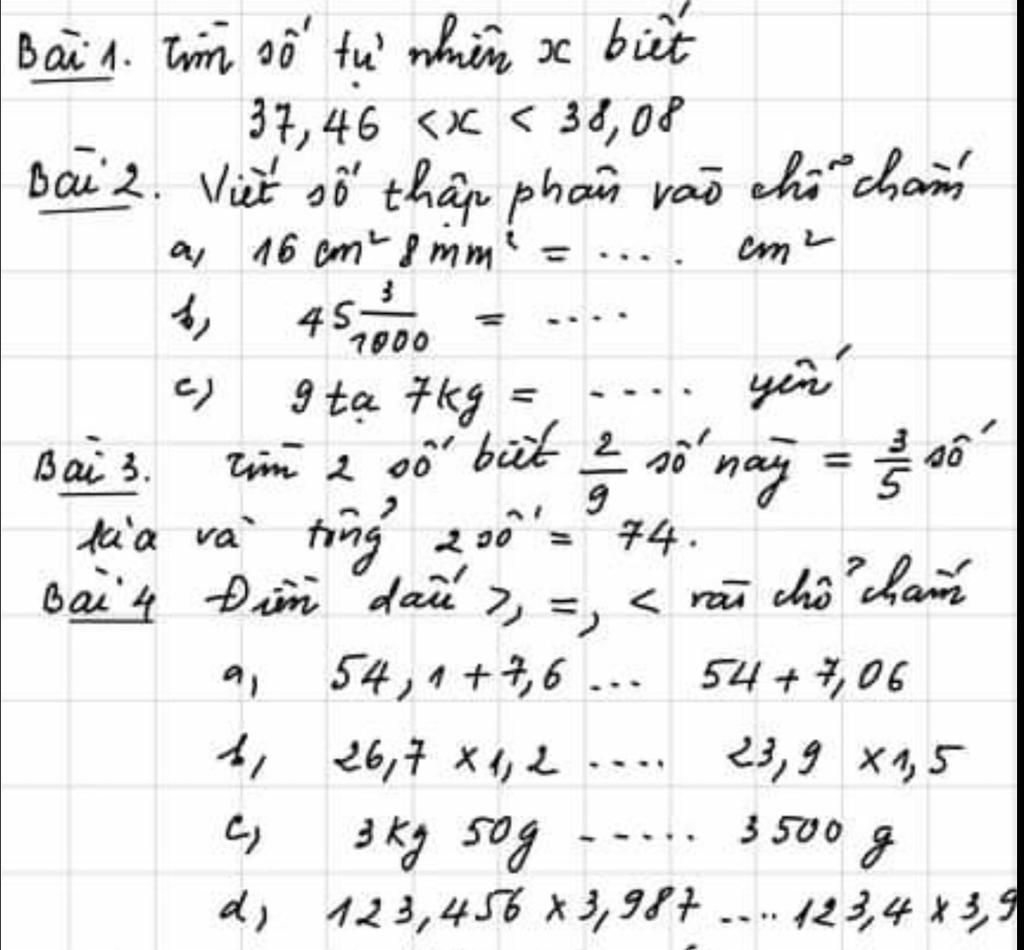 Bài 1. Tìm số tự nhiên x biết
37,46 < x < 38,08
Bài 2. Viết số thập phân vào chỗ chấm
a, 16 cm² 8 mm² = .... cm²
b, 45 3/1000 = ....
c) 9 tạ 7kg = ..... yến
Bài 3. Tìm 2 số biết 2/9 số này = 3/5 số
kia và tổng 2 số = 74.
Bài 4 Điền dấu >, =, < vào chỗ chấm
a, 54,1 + 7,6 ... 54 + 7,06
b, 26,7 x 1,2 .... 23,9 x 1,5
c, 3kg 50g ...... 3500 g
d, 123,456 x 3,987 .... 123,4 x 3,9